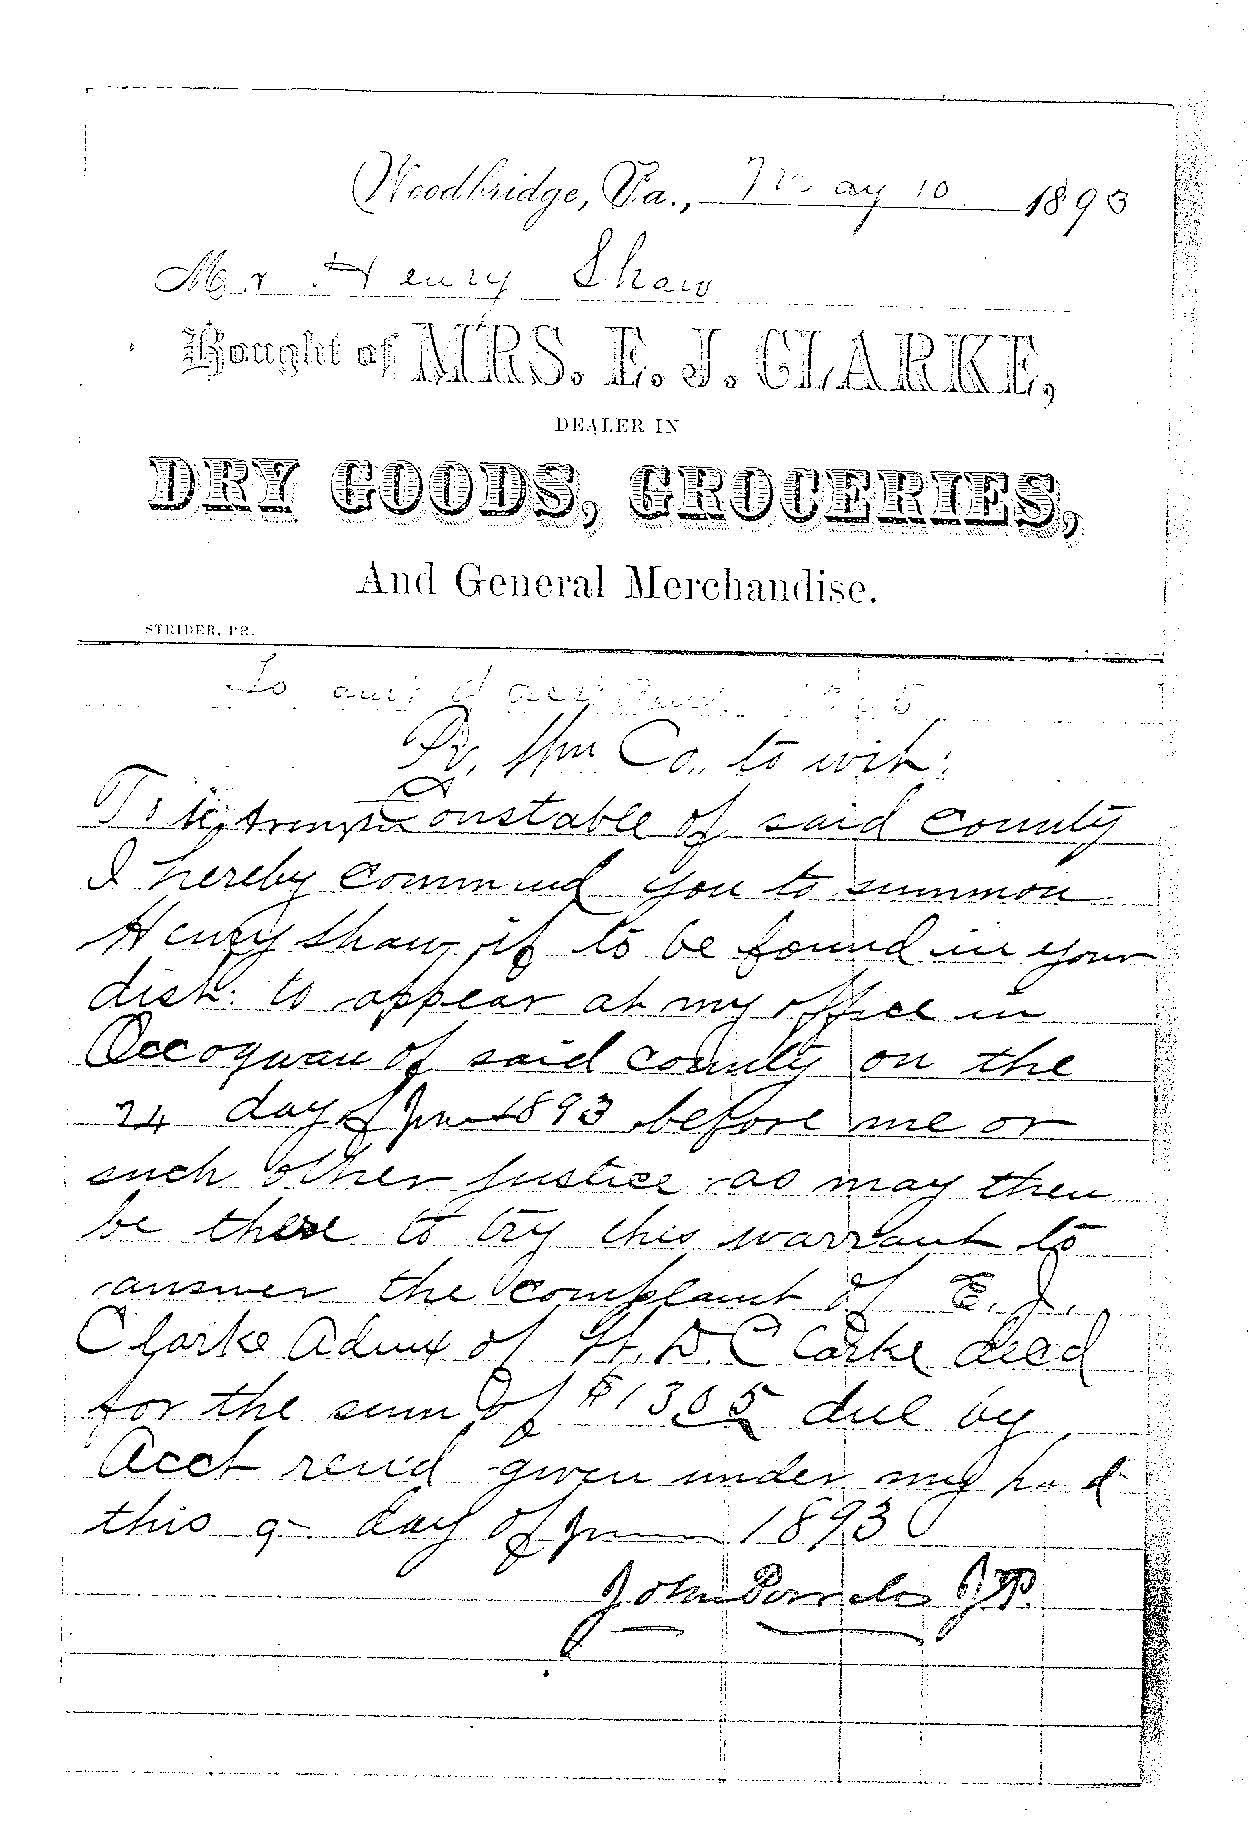 Woodbridge, Va., May 10 1893
Mr Henry Shaw
Bought of MRS. E. J. CLARKE,
DEALER IN
DRY GOODS, GROCERIES,
And General Merchandise.
STRIDER, PR.
To amt of acct
Pr. Wm Co., to wit:
To Constable of said county
I hereby command you to summon
Henry Shaw, if to be found in your
dist. to appear at my office in
Occoquan of said county on the
24 day of June 1893 before me or
such other Justice as may then
be there to try this warrant to
answer the complaint of E. J.
Clarke Admx of W. D. Clarke decd
for the sum of $1305 due by
Acct rend given under my hand
this 9 day of June 1893
John J.P.